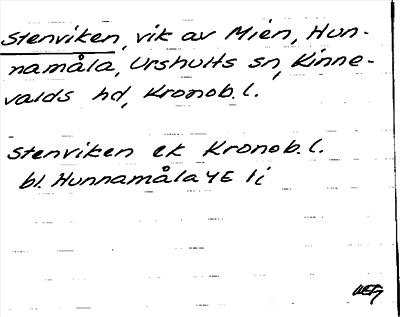 Stenviken, vik av Mien, Hun-
namåla, Urshults sn, Kinne-
valds hd, Kronob. l.
Stenviken ek Kronob. l.
bl. Hunnamåla 4E 1i